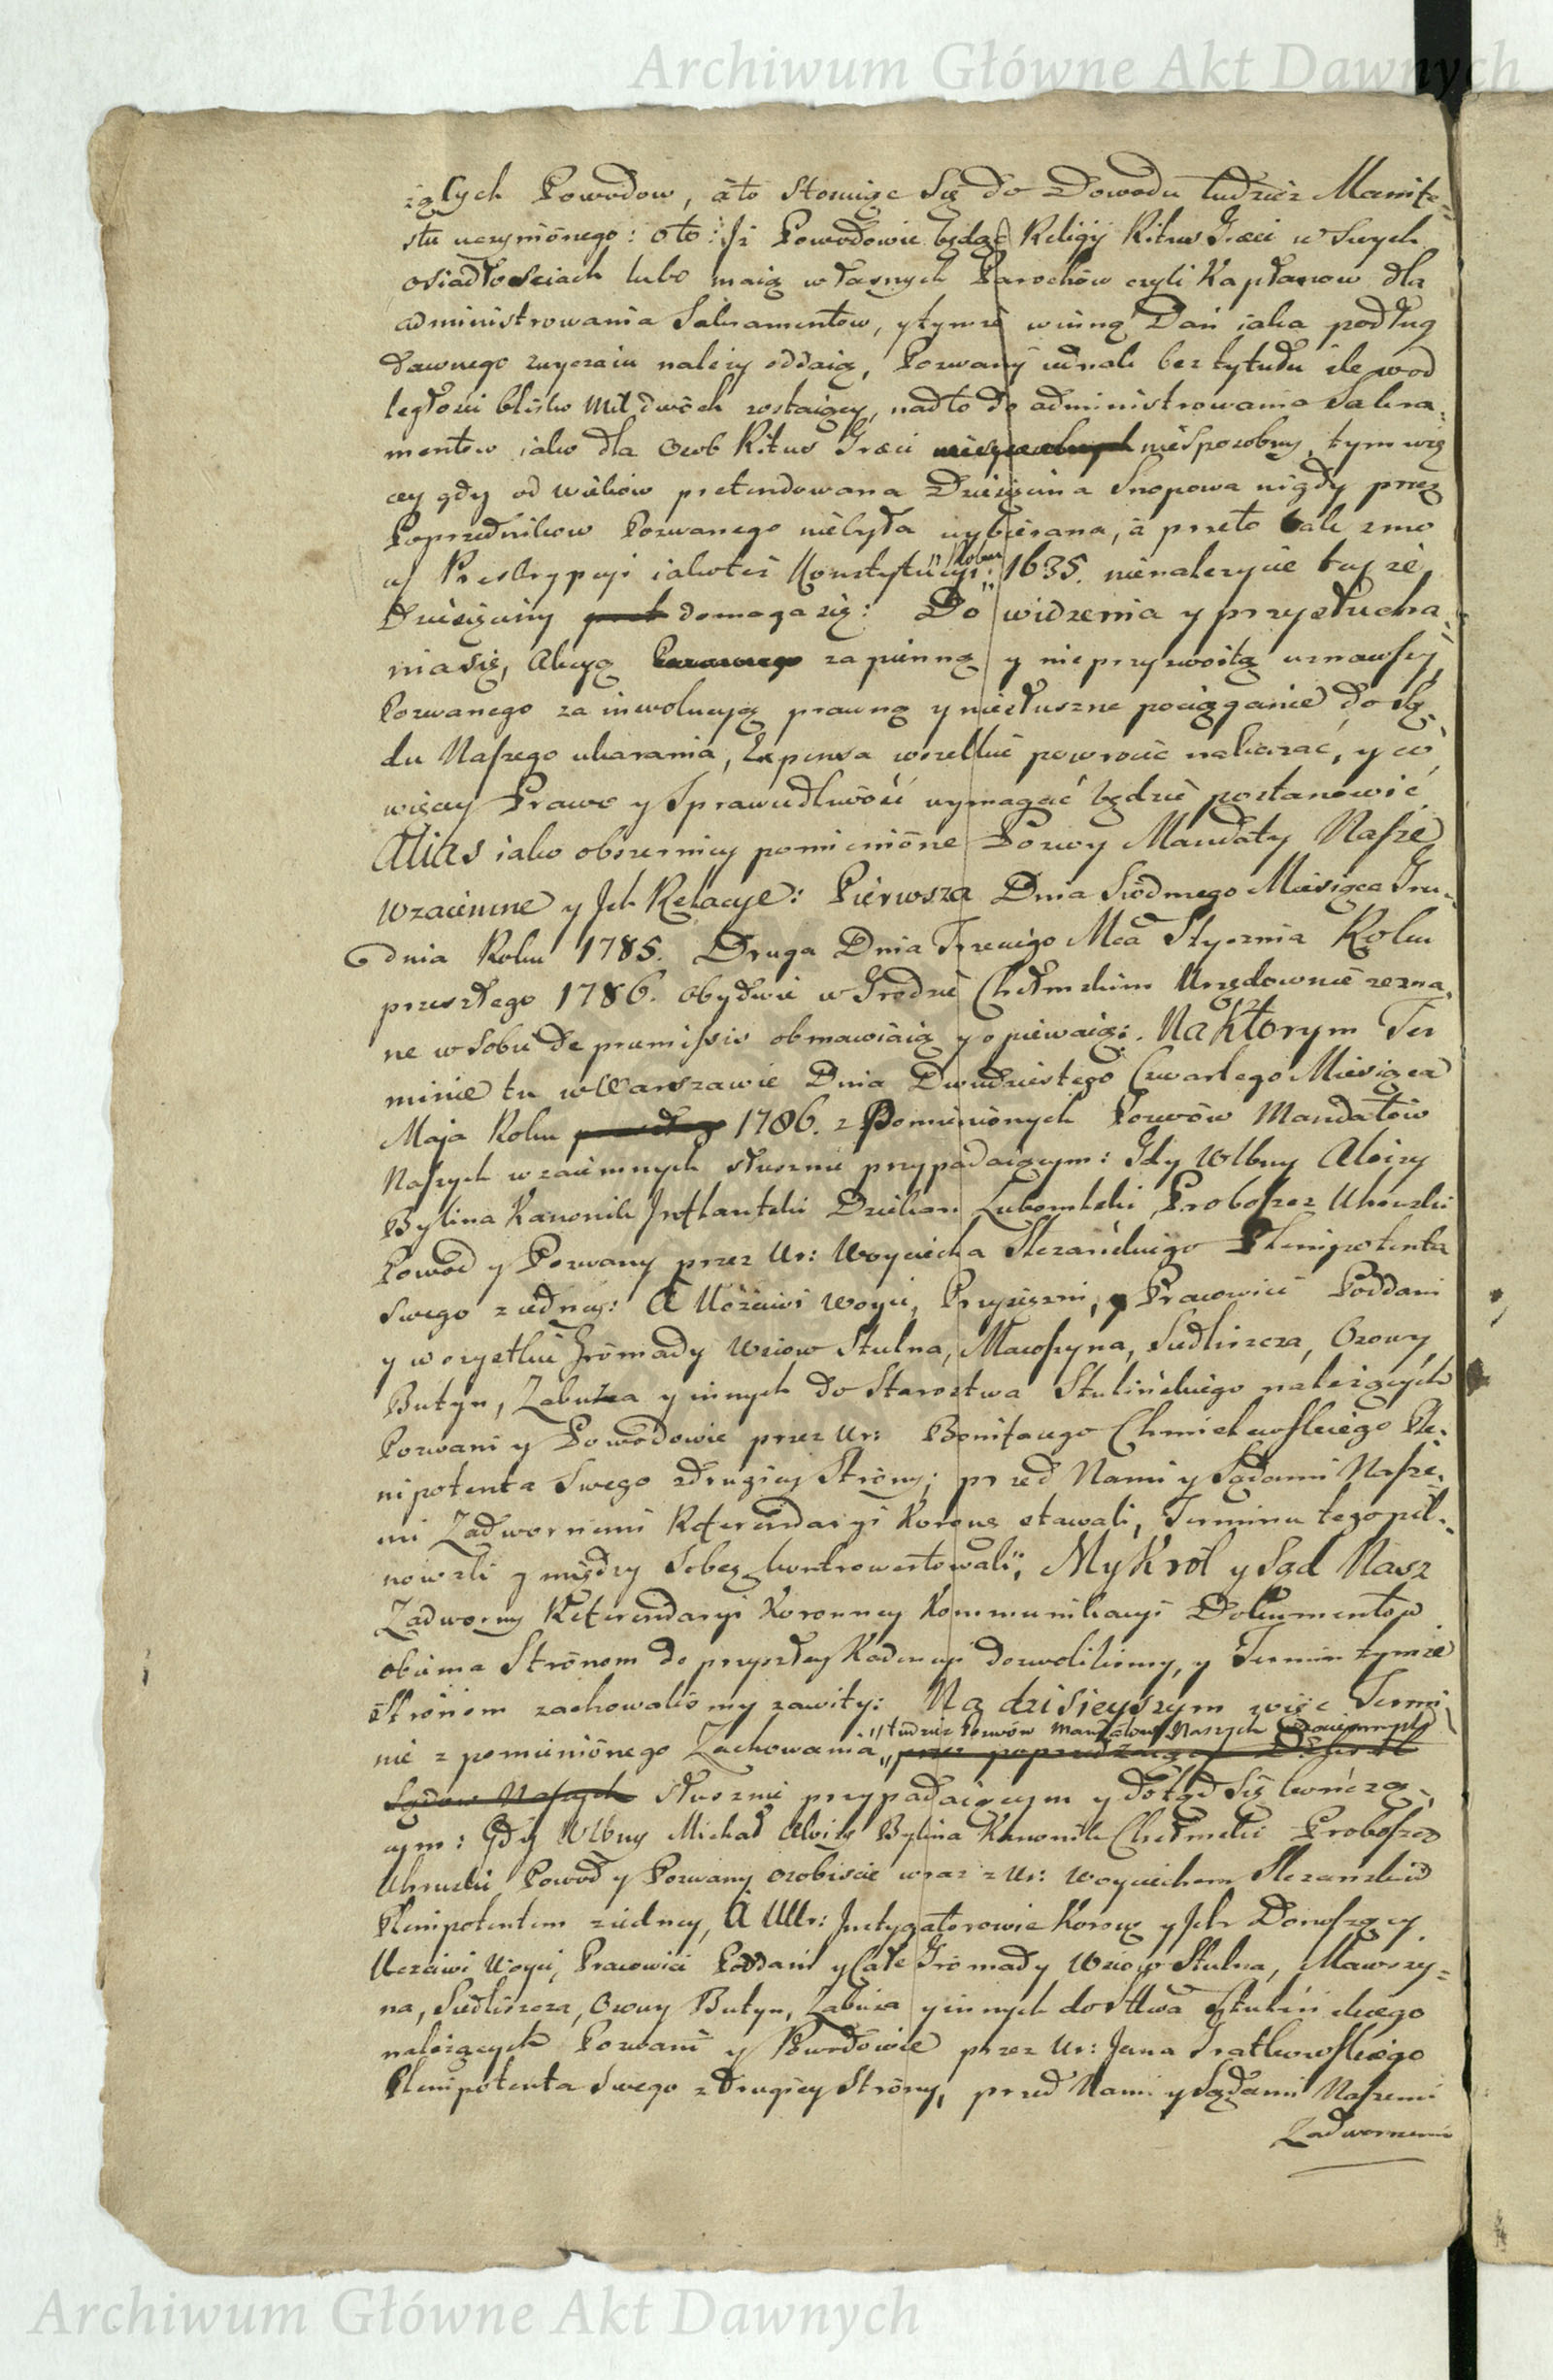 Archiwum Główne Akt Dawnych
iących Powodow, áto stosuiąc się do Dowodu tudziez Manife=
stu uczynionego: oto: Jż Powodowie będąc Religij Ritus Græci w swych
osiadłosciach lubo maią własnych Parochów czyli Kapłanow dla
administrowania Sakramentow, y tymże winną Dań iaka podług
dawnego zwyczaiu nalezy oddaią, Pozwany iednak bez tytułu ile w od
ległości blisko mil dwóch zostaiący, nadto do administrowania Sakra=
mentow iako dla Osob Ritus Græci niesposobny, tym wię
cey gdy od wieków pretendowana Dziesięcina Snopowa nigdy przez
Poprzedników Pozwanego niebyła wybierana, á przeto zmo
cy Preskrypcyi iakoteż Konstytucyi 1635. nienalezycie teyże
Dziesięciny domaga się: Do widzenia y przysłucha=
nia się, Akcyą za pienną y nieprzyzwoitą uznawszy,
Pozwanego za inwolucyą prawną y niesłuszne pociąganie do Są=
du Naszego ukarania, Expensa wszelkie powrocić nakazać, y co
więcey Prawo y Sprawiedliwość wymagać będzie postanowić
Alias iako obszerniey pomienione Pozwy Mandaty Nasze
Wzaiemne y Jch Relacye: Pierwsza Dnia Siodmego Miesiąca Gru=
dnia Roku 1785. Druga Dnia Trzeciego Mca Stycznia Roku
przeszłego 1786. obydwie w Grodzie Chełmskim Urzędownie zezna=
ne w sobie de præmissis obmawiaią y opiewaią: Na Ktorym Ter
minie tu w Warszawie Dnia Dwudziestego Czwartego Miesiąca
Maja Roku 1786. z Pomienionych Pozwów Mandatów
Naszych wzaiemnych słusznie przypadaiącym: Gdy Wlbny Aloizy
Bylina Kanonik Jnflantski Dziekan Lubomlski Proboszcz Uhruski
Powod y Pozwany przez Ur: Woyciecha Slezańskiego Plenipotenta
swego z iedney: A Uczciwi Woyci, Przysiężni, y Pracowici Poddani
y wszystkie Gromady Wsiow Stulna, Macoszyna, Siedliszcza, Osowy,
Butyn, Zabuza y innych do Starostwa Stulińskiego nalezących
Pozwani y Powodowie przez Ur: Bonifacego Chmielewskiego Ple=
nipotenta Swego z drugiey Strony; przed Nami y Sądami Nasze=
mi Zadwornemi Referendaryi Koronney stawali, Terminu tego pil=
nowali y między sobą kontrowertowali; My Król y Sąd Nasz
Zadworny Referendaryi Koronney Kommunikacyi Dokumentow
obiema Stronom do przyszłey Kadencyi dozwoliliśmy, y Termin tymże
Stronom zachowaliśmy zawity: Na dzisieyszym więc Termi
tudziez Pozwów Mandatow Naszych Wzaiemnych
nie z pomienionego Zachowania przez poprzedzaiący Dekret
Sądow Naszych słusznie przypadaiącym y dotąd się kończą=
cym: Gdy Wlbny Michał Aloizy Bylina Kanonik Chełmski Proboszcz
Uhruski Powod y Pozwany osobiscie wraz z Ur: Woyciechem Slezanskim
Plenipotentem z iedney, A UUr: Jnstygatorowie Koronny y Jch Donoszący
Uczciwi Woyci, Pracowici Poddani y Całe Gromady Wsiow Stulna, Macoszy=
na, Siedliszcza, Osowy Butyn, Zabuza y innych do Sttwa Stulińskiego
nalezących Pozwani y Powodowie przez Ur: Jana Gratkowskiego
Plenipotenta Swego z drugiey Strony, przed Nami y Sądami Naszemi
Zadwornemi
Archiwum Główne Akt Dawnych